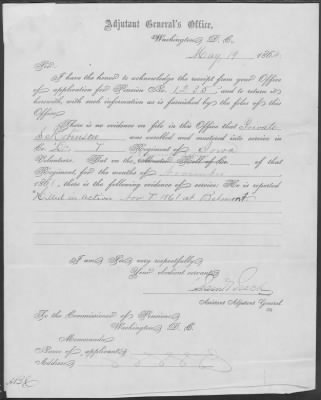 Adjutant General's Office,
Washington, D. C.
May 19 186
Sir:
I have the honor to acknowledge the receipt from your Office
of application for Pension No. 1225 and to return it
herewith, with such information as is furnished by the files of this
Office.
There is no evidence on file in this Office that Private
was enrolled and mustered into service in
Co. 7 Regiment of Iowa
Volunteers. But on the Muster Roll of Co. of that
Regiment, for the months of November
1861, there is the following evidence of service: He is reported
"Killed in action Nov 7 1861 at Belmont"
I am, Sir, very respectfully,
Your obedient servant,
Assistant Adjutant General.
To the Commissioner of Pensions,
Washington, D. C.
Memoranda:
Name of applicant,
Address,